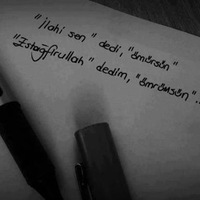 "İlahi sen" dedi, "ömürsün"
"Estağfirullah" dedim, "ömrümsün"..